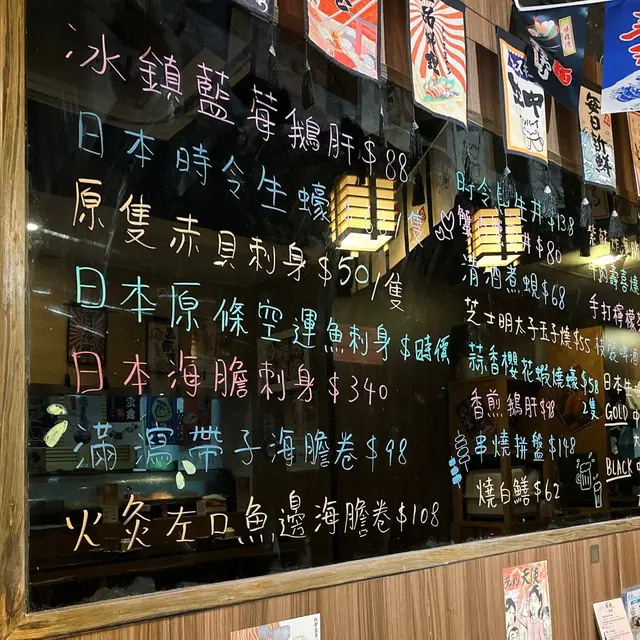 冰鎮藍莓鵝肝$88
日本時令生蠔 /隻
原隻赤貝刺身$50/隻
日本原條空運魚刺身$時價
日本海膽刺身$340
滿瀉帶子海膽卷$98
火灸左口魚邊海膽卷$108
時令 生丼$138
蟹 丼$80
清酒煮蜆$68
芝士明太子玉子燒$55
蒜香櫻花蝦燒蠔$58 2隻
香煎鵝肝$48
串燒拼盤$148
燒白鱔$62
手打檸檬
日本生
GOLD
BLACK
毎日新鮮